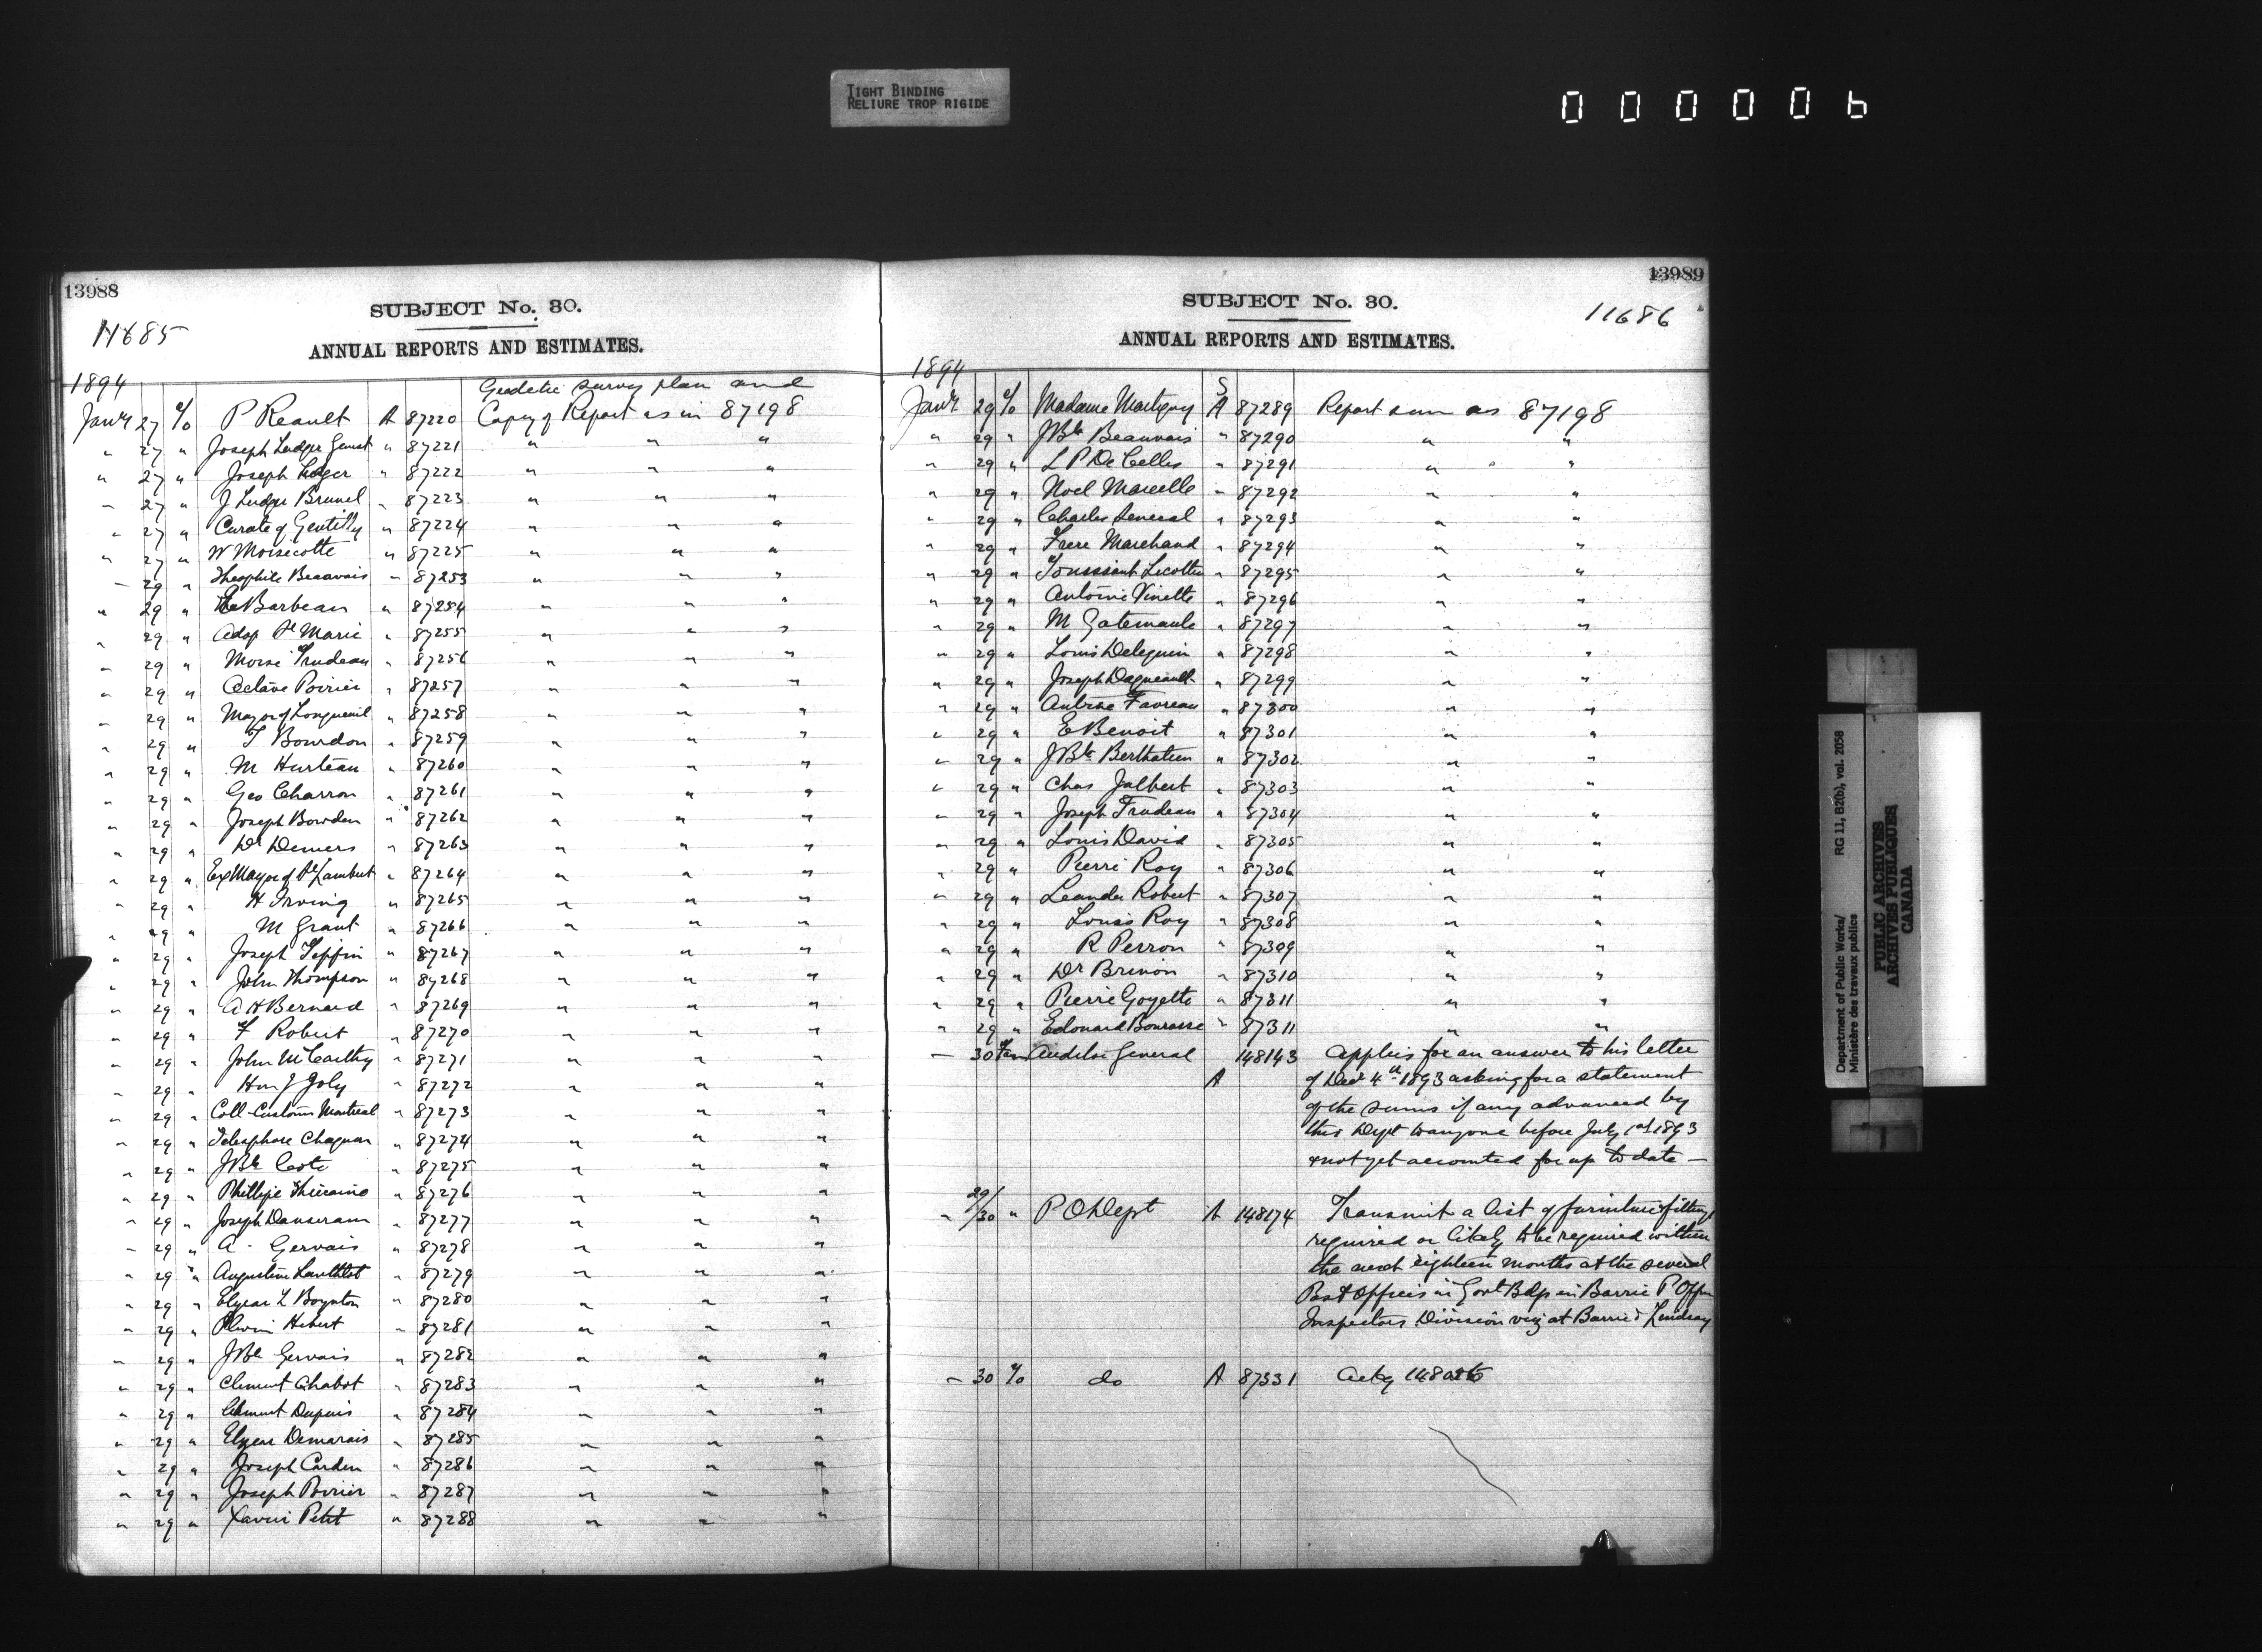 TIGHT BINDING
RELIURE TROP RIGIDE
000006
13988
SUBJECT No. 30.
11685
ANNUAL REPORTS AND ESTIMATES.
1894
Geodetic survey plan and
Janry 27 o/o P Reault A 87220 Copy of Report as in 87198
" 27 " Joseph Ludger Genest " 87221 " " "
" 27 " Joseph Leger " 87222 " " "
" 27 " J Ludger Brunel " 87223 " " "
" 27 " Curate of Gentilly " 87224 " " "
" 27 " W Moisecotte " 87225 " " "
" 29 " Theophile Beauvais " 87253 " " "
" 29 " Barbeau " 87254 " " "
" 29 " Adop St Marie " 87255 " " "
" 29 " Moise Trudeau " 87256 " " "
" 29 " Octave Poirier " 87257 " " "
" 29 " Mayor of Longueuil " 87258 " " "
" 29 " T Bourdon " 87259 " " "
" 29 " M Hurteau " 87260 " " "
" 29 " Geo Charron " 87261 " " "
" 29 " Joseph Bowden " 87262 " " "
" 29 " Dr Demers " 87263 " " "
" 29 " Ex Mayor of St Lambert " 87264 " " "
" 29 " H Irving " 87265 " " "
" 29 " M Grant " 87266 " " "
" 29 " Joseph Teffin " 87267 " " "
" 29 " John Thompson " 87268 " " "
" 29 " A H Bernard " 87269 " " "
" 29 " F Robert " 87270 " " "
" 29 " John McCarthy " 87271 " " "
" 29 " Hon J Joly " 87272 " " "
" 29 " Coll-Customs Montreal " 87273 " " "
" 29 " Telesphore Chagnon " 87274 " " "
" 29 " J Bte Coté " 87275 " " "
" 29 " Phillipe " 87276 " " "
" 29 " Joseph Dansereau " 87277 " " "
" 29 " A. Gervais " 87278 " " "
" 29 " Augustin " 87279 " " "
" 29 " Elzear L Boynton " 87280 " " "
" 29 " Hebert " 87281 " " "
" 29 " J Bte Gervais " 87282 " " "
" 29 " Clement Chabot " 87283 " " "
" 29 " Clement Dupuis " 87284 " " "
" 29 " Elzear Demarais " 87285 " " "
" 29 " Joseph Carden " 87286 " " "
" 29 " Joseph Poirier " 87287 " " "
" 29 " Xavier Petit " 87288 " " "
13989
SUBJECT No. 30.
11686
ANNUAL REPORTS AND ESTIMATES.
1894
S
Janry 29 o/o Madame Martigny A 87289 Report same as 87198
" 29 " J Bte Beauvais " 87290 " "
" 29 " L P De Celles " 87291 " "
" 29 " Noel Marcelle " 87292 " "
" 29 " Charles Seneral " 87293 " "
" 29 " Frere Marchand " 87294 " "
" 29 " Toussaint Licotte " 87295 " "
" 29 " Antoine Vinette " 87296 " "
" 29 " M Gatemaule " 87297 " "
" 29 " Louis Deleguin " 87298 " "
" 29 " Joseph Dagneault " 87299 " "
" 29 " Antoine Favreau " 87300 " "
" 29 " E Benoit " 87301 " "
" 29 " J Bte Berthatieu " 87302 " "
" 29 " Chas Jalbert " 87303 " "
" 29 " Joseph Trudeau " 87304 " "
" 29 " Louis David " 87305 " "
" 29 " Pierre Roy " 87306 " "
" 29 " Leander Robert " 87307 " "
" 29 " Louis Roy " 87308 " "
" 29 " R Perron " 87309 " "
" 29 " Dr Brinon " 87310 " "
" 29 " Pierre Goyette " 87311 " "
" 29 " Edouard Bourasse " 87311 " "
" 30 Auditor General 148143 Applies for an answer to his letter
A of Decr 4th 1893 asking for a statement
of the sums if any advanced by
this Dept to anyone before July 1st 1893
& not yet accounted for up to date —
" 29/30 " P O Dept A 148174 Transmit a list of furniture & fittings
required or likely to be required within
the next eighteen months at the several
Post Offices in Govt Bdgs in Barrie P Office
Inspectors Division viz at Barrie & Lindsay
" 30 o/o do A 87331 Ackg
Department of Public Works/
Ministère des travaux publics
RG 11, B2(b), vol. 2058
PUBLIC ARCHIVES
ARCHIVES PUBLIQUES
CANADA